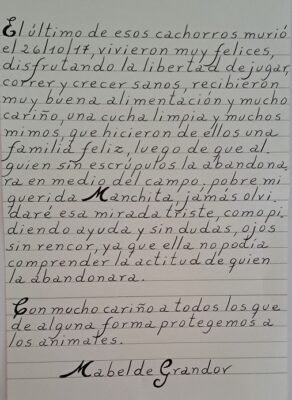 El último de esos cachorros murió
el 26/10/17, vivieron muy felices,
disfrutando la libertad de jugar,
correr y crecer sanos, recibieron
muy buena alimentación y mucho
cariño, una cucha limpia y muchos
mimos, que hicieron de ellos una
familia feliz, luego de que al.
guien sin escrúpulos la abandona.
ra en medio del campo, pobre mi
querida Manchita, jamás olvi.
daré esa mirada triste, como pi.
diendo ayuda y sin dudas, ojos
sin rencor, ya que ella no podía
comprender la actitud de quien
la abandonara.
Con mucho cariño a todos los que
de alguna forma protegemos a
los animales.
Mabel de Grandov